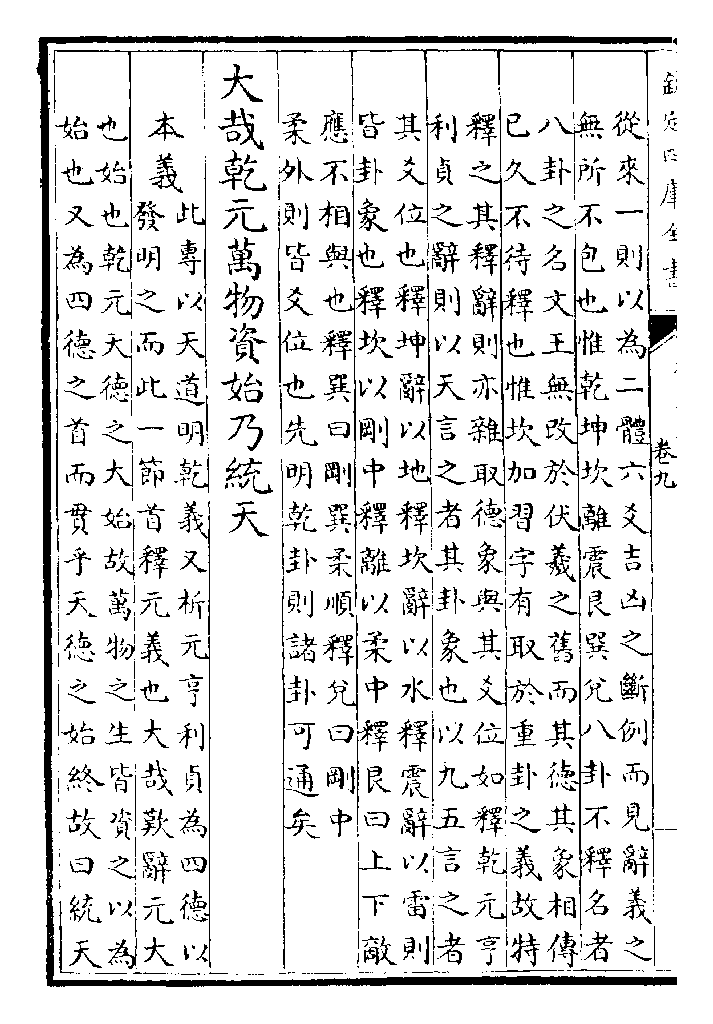 欽定四庫全書
卷九
從來一則以為二體六爻吉凶之斷例而見辭義之
無所不包也惟乾坤坎離震艮巽兌八卦不釋名者
八卦之名文王無改於伏羲之舊而其德其象相傳
已久不待釋也惟坎加習字有取於重卦之義故特
釋之其釋辭則亦雜取德象與其爻位如釋乾元亨
利貞之辭則以天言之者其卦象也以九五言之者
其爻位也釋坤辭以地釋坎辭以水釋震辭以雷則
皆卦象也釋坎以剛中釋離以柔中釋艮曰上下敵
應不相與也釋巽曰剛巽柔順釋兌曰剛中
柔外則皆爻位也先明乾卦則諸卦可通矣
大哉乾元萬物資始乃統天
本義此專以天道明乾義又析元亨利貞為四德以
發明之而此一節首釋元義也大哉歎辭元大
也始也乾元天德之大始故萬物之生皆資之以為
始也又為四德之首而貫乎天德之始終故曰統天